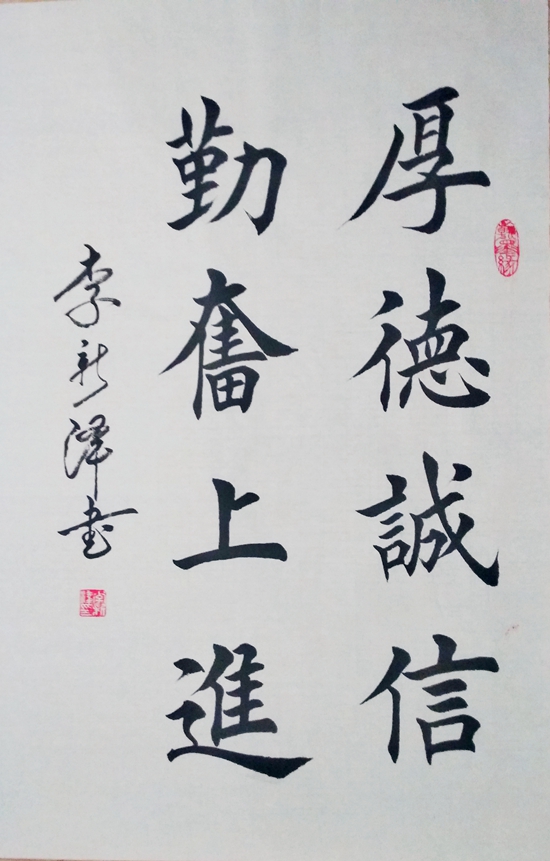 厚德誠信
勤奮上進
李新澤书